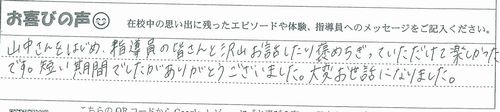 お喜びの声
在校中の思い出に残ったエピソードや体験、指導員へのメッセージをご記入ください。
山中さんをはじめ、指導員の皆さんと沢山お話したり褒めちぎっていただけて楽しかった
です。短い期間でしたがありがとうございました。大変お世話になりました。
こちらのQRコードから Google